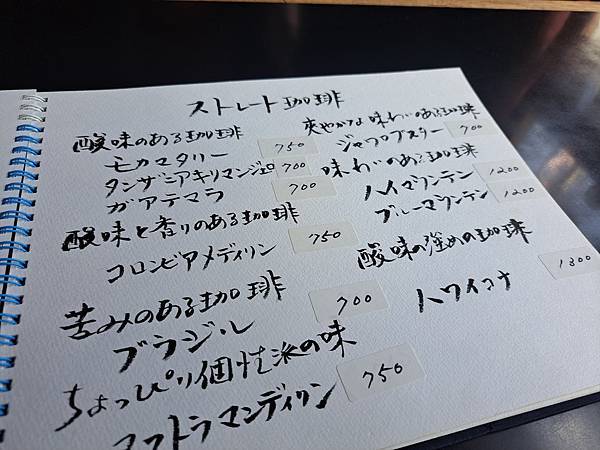 ストレート珈琲
酸味のある珈琲
モカマタリー 750
タンザニアキリマンジェロ 700
ガアテマラ 700
酸味と香りのある珈琲
コロンビアメディリン 750
苦みのある珈琲
ブラジル 700
ちょっぴり個性派の味
マンディリン 750
爽やかな味わいのある珈琲
ジャワロブスター 700
味わいのある珈琲
ハイマウンテン 1200
ブルーマウンテン 1200
酸味の強めの珈琲
ハワイコナ 1300